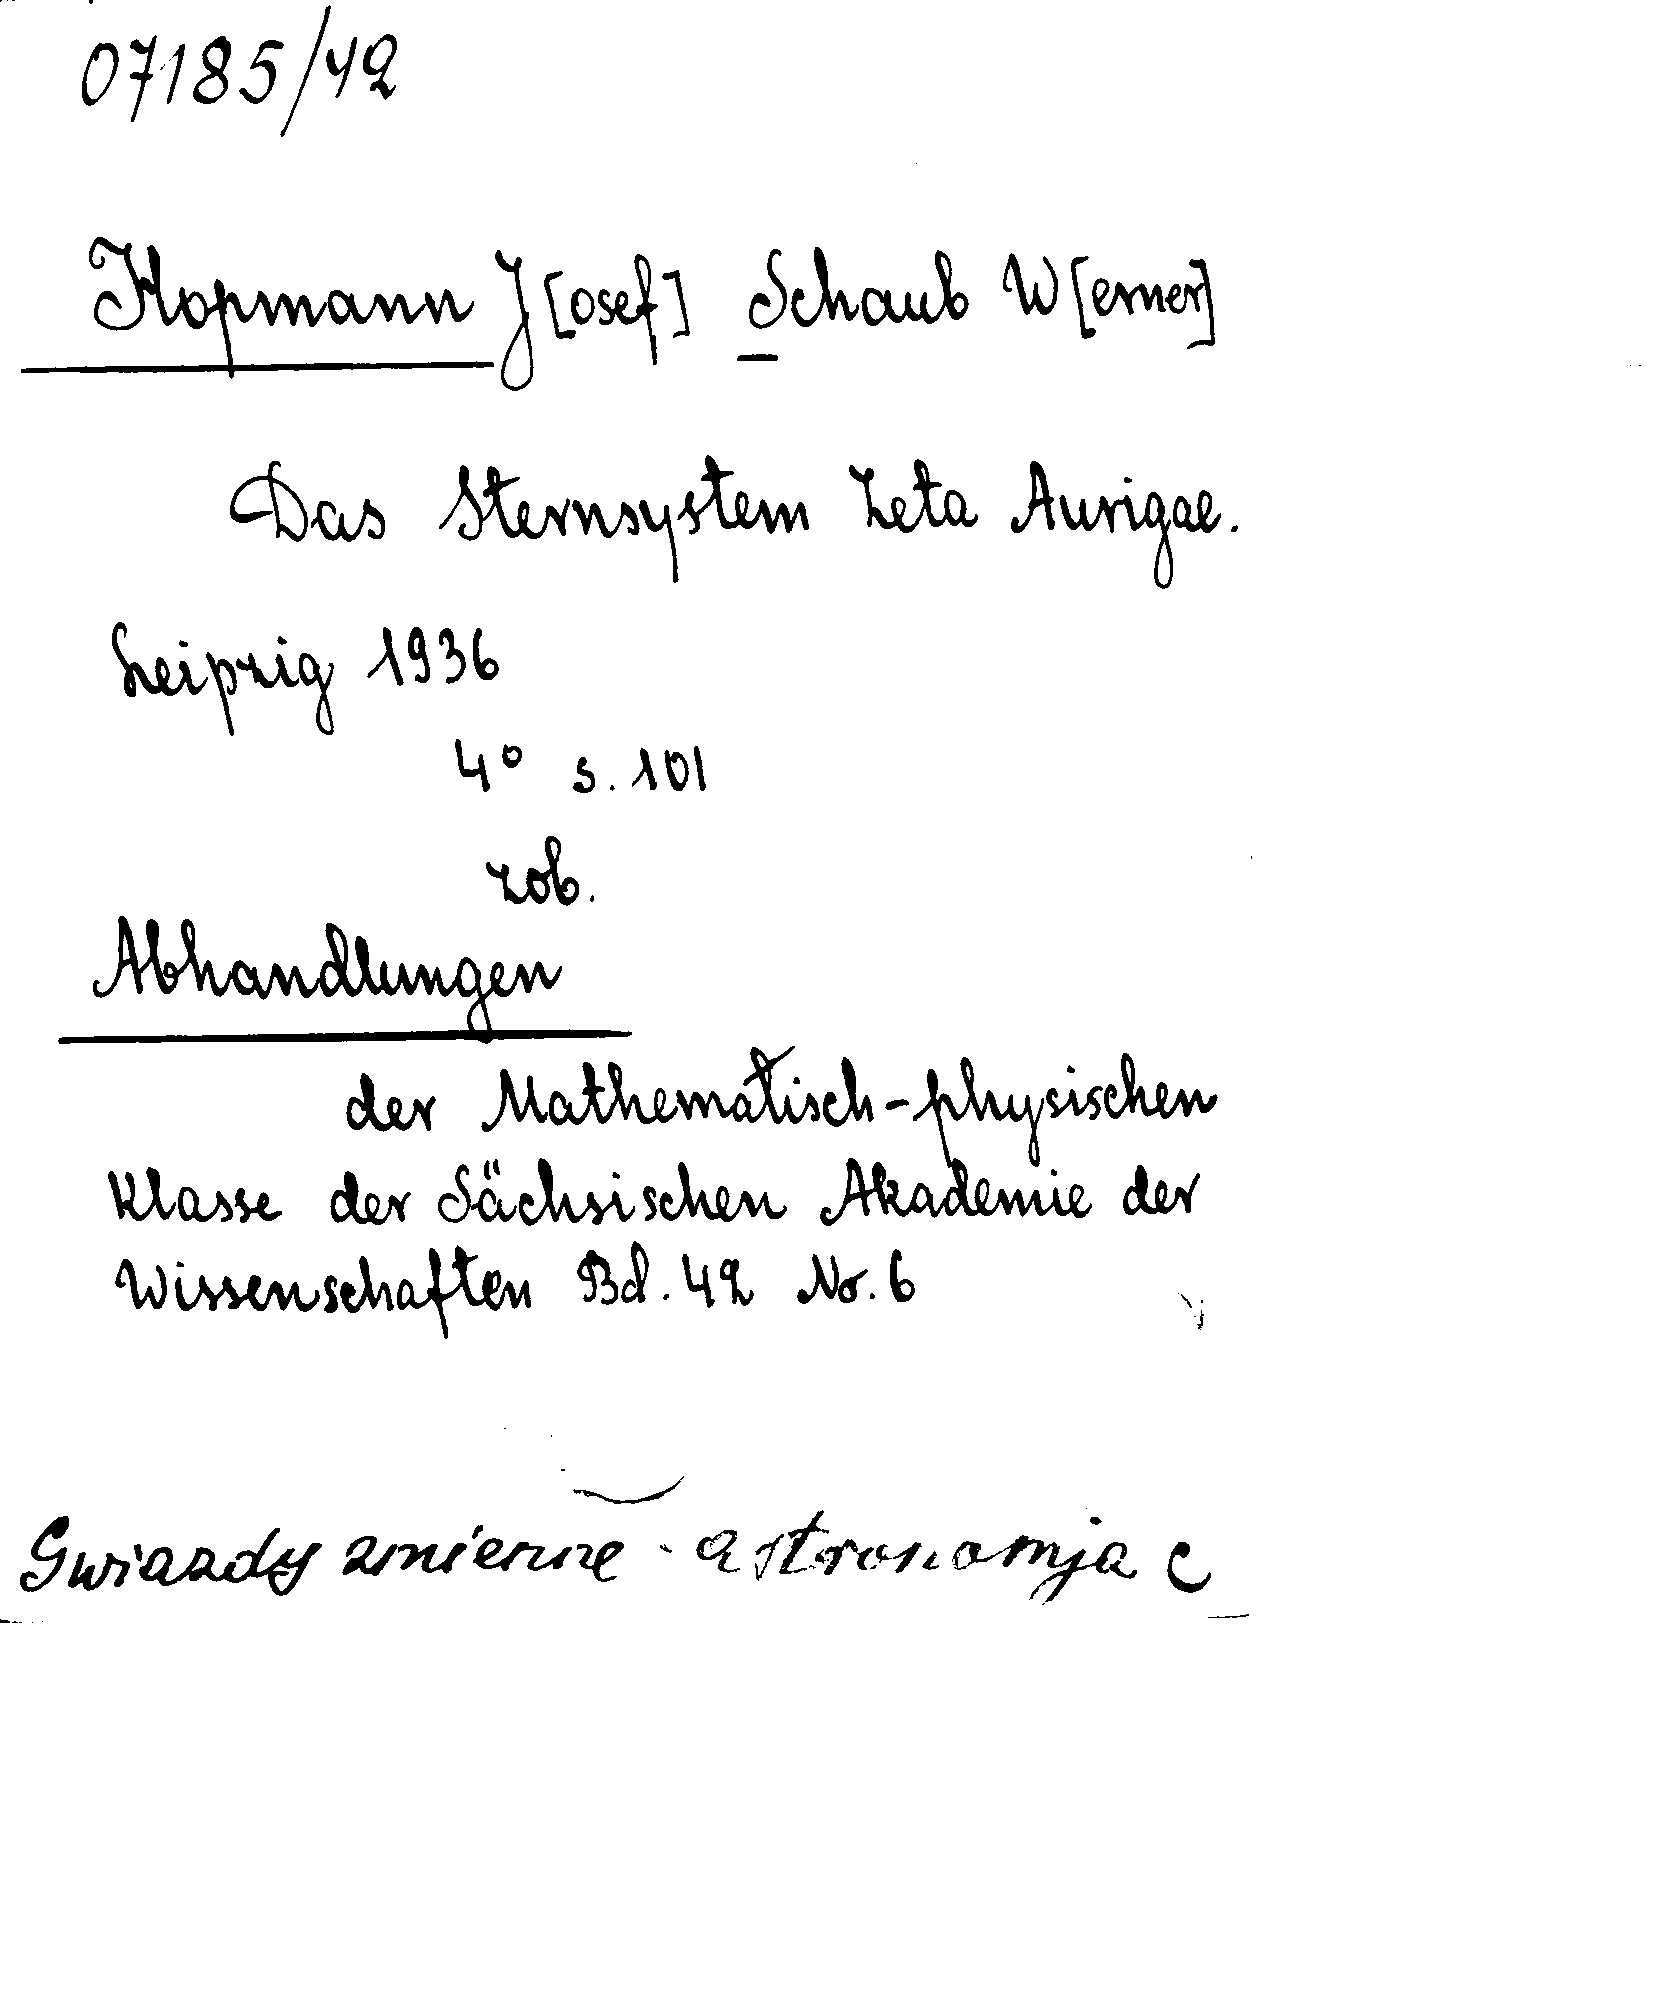 07185/42
Hopmann J[osef] Schaub W[erner]
Das Sternsystem Zeta Aurigae.
Leipzig 1936
4° s. 101
zob.
Abhandlungen
der Mathematisch-physischen
Klasse der Sächsischen Akademie der
Wissenschaften Bd. 42 No. 6
Gwiazdy zmienne - astronomja c